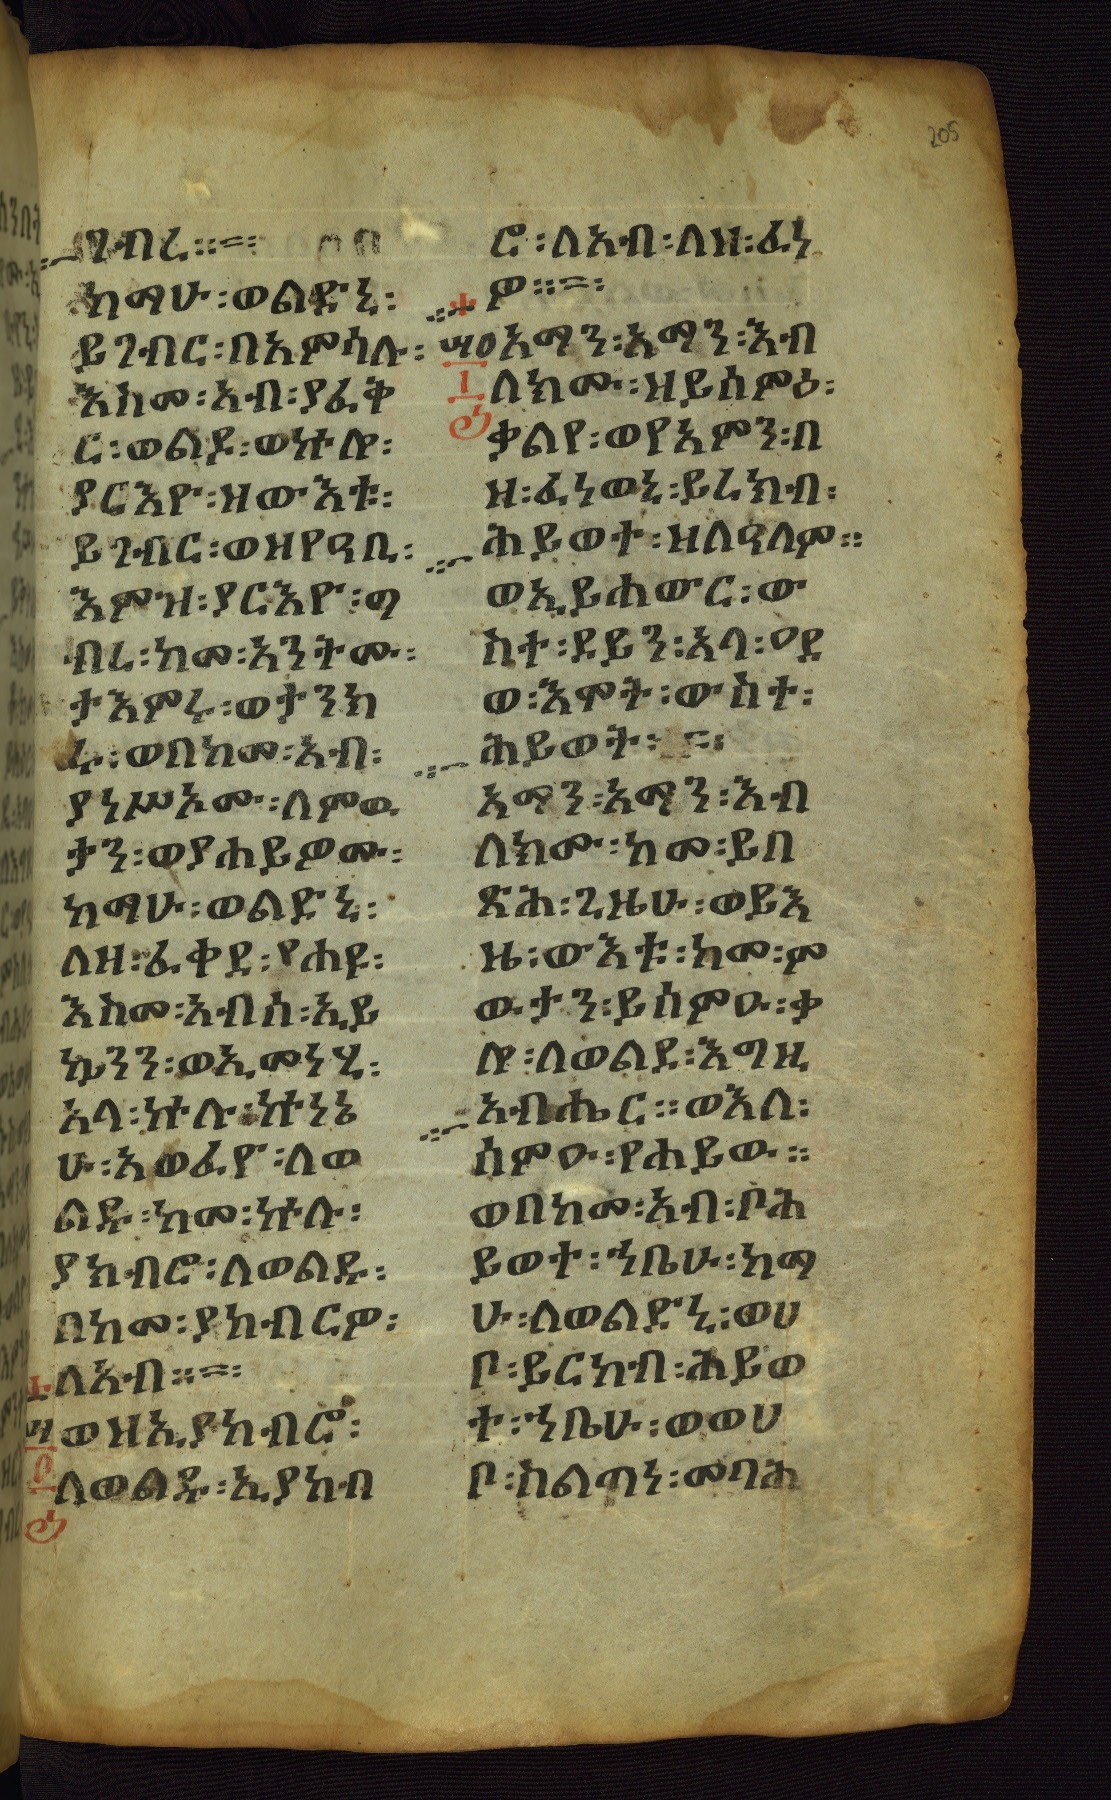 205
ገብረ ።=፡
ከማሁ ፡ ወልድኒ ፡
ይገብር ፡ በአምሳሉ ፡
እስመ ፡ አብ ፡ ያፈቅ
ር ፡ ወልዶ ፡ ወኵሎ ፡
ያርእዮ ፡ ዘውእቱ ፡
ይገብር ፡ ወዘየዓቢ ፡
እምዝ ፡ ያርእዮ ፡ ግ
ብረ ፡ ከመ ፡ አንትሙ ፡
ታአምሩ ፡ ወታንክ
ሩ ፡ ወበከመ ፡ አብ ፡
ያነሥኦሙ ፡ ለምዉ
ታን ፡ ወያሐይዎሙ ፡
ከማሁ ፡ ወልድኒ ፡
ለዘ ፡ ፈቀደ ፡ የሐዩ ፡
እስመ ፡ አብሰ ፡ ኢይ
ኴንን ፡ ወኢመነሂ ፡
አላ ፡ ኵሉ ፡ ኵነኔ
ሁ ፡ አወፈዮ ፡ ለወ
ልዱ ፡ ከመ ፡ ኵሉ ፡
ያክብሮ ፡ ለወልዱ ፡
በከመ ፡ ያከብርዎ ፡
ለአብ ።=፡
ወዝኢያከብሮ ፡
ለወልዱ ፡ ኢያከብ
ሮ ፡ ለአብ ፡ ለዘ ፡ ፈነ
ዎ ።=፡
አማን ፡ አማን ፡ እብ
ለክሙ ፡ ዘይሰምዕ ፡
ቃልየ ፡ ወየአምን ፡ በ
ዘ ፡ ፈነወኒ ፡ ይረክብ ፡
ሕይወተ ፡ ዘለዓለም ።
ወኢይሐውር ፡ ው
ስተ ፡ ደይን ፡ አላ ፡ ዐደ
ወ ፡ እሞት ፡ ውስተ ፡
ሕይወት ፡ =፡
አማን ፡ አማን ፡ እብ
ለክሙ ፡ ከመ ፡ ይበ
ጽሕ ፡ ጊዜሁ ፡ ወይእ
ዜ ፡ ውእቱ ፡ ከመ ፡ ም
ዉታን ፡ ይሰምዑ ፡ ቃ
ሎ ፡ ለወልደ ፡ እግዚ
አብሔር ። ወእለ ፡
ሰምዑ ፡ የሐይዉ ።
ወበከመ ፡ አብ ፡ ቦሕ
ይወተ ፡ ኀቤሁ ፡ ከማ
ሁ ፡ ለወልድኒ ፡ ወሀ
ቦ ፡ ይርከብ ፡ ሕይወ
ተ ፡ ኀቤሁ ፡ ወወሀ
ቦ ፡ ስልጣነ ፡ መባሕ